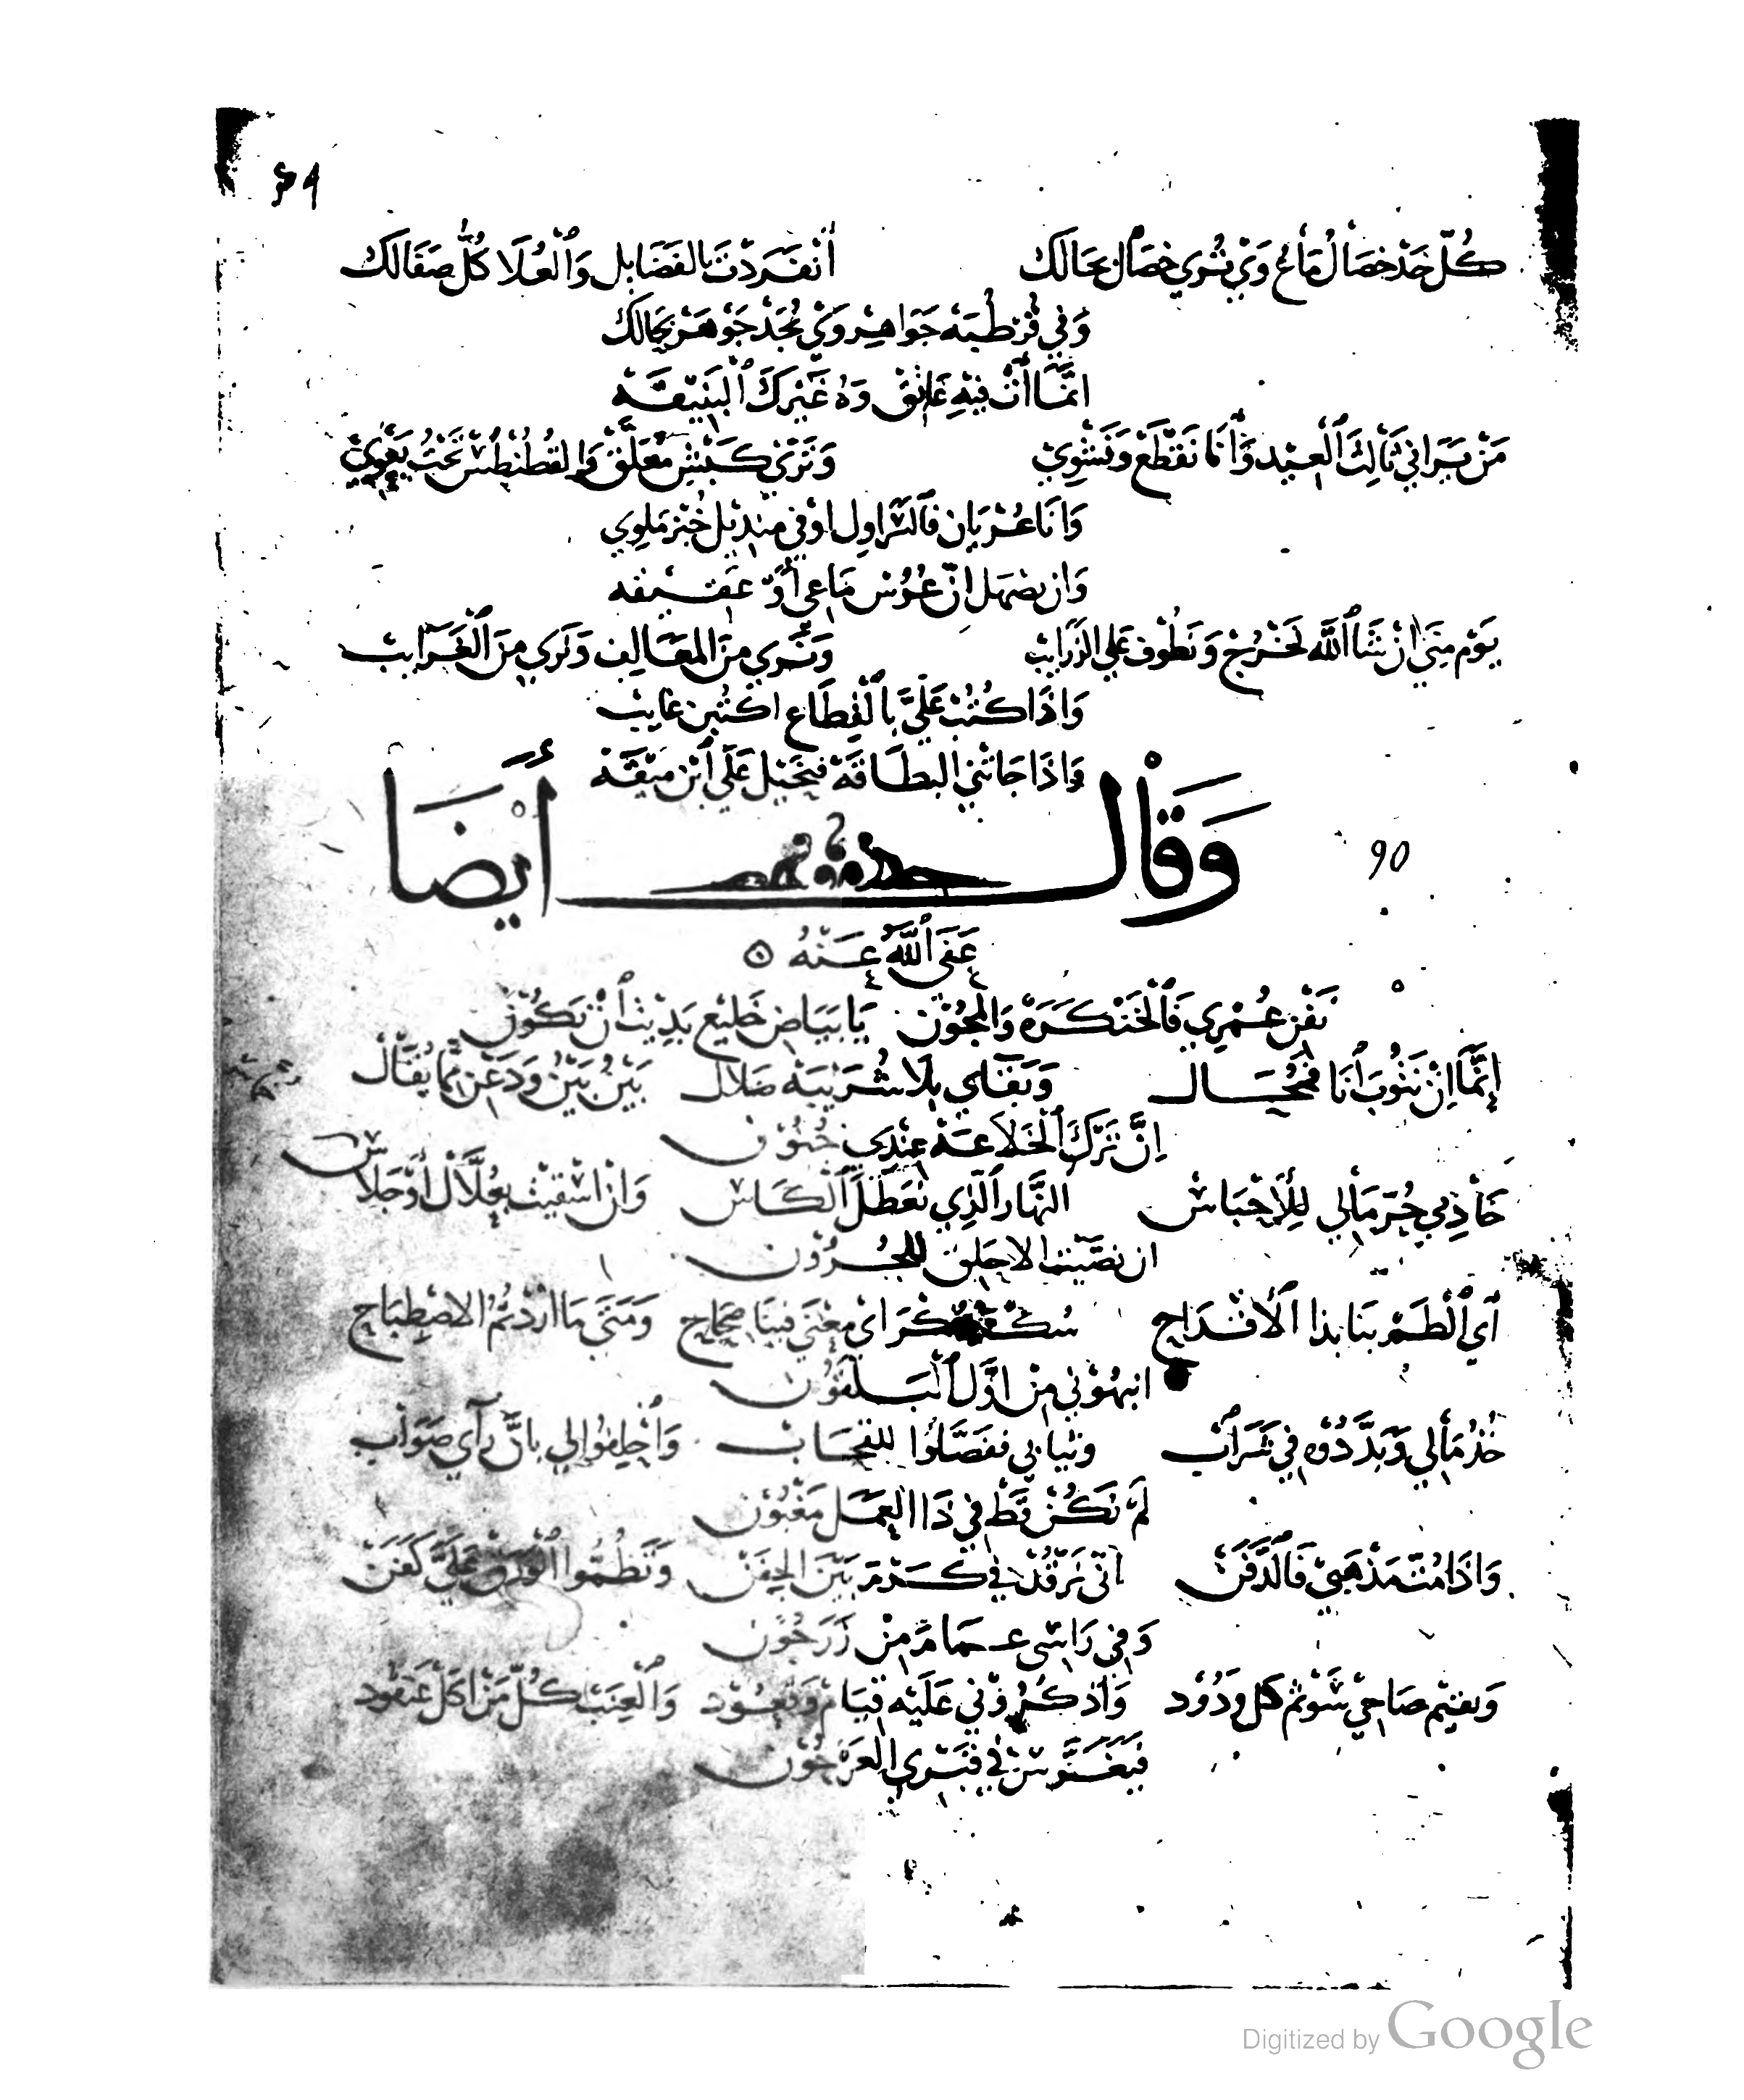 كُلّ حَدْ خصَالُ مَاعُ وَيْ نُشري خصَال بحَالكْ أنْفَرَدْتَ بالفَضَايل وَٱلْعُلَا كُلّ صَقَالكْ
وَفِي قُرْطُبَه جَوَاهِر وَيْ نُجَدْ جَوْهَرْ بحَالكْ
انَّمَا أنْت فِيه غَانقْ وَهُ غَيْرَكَ ٱلْبَنيْقَه
مَنْ يَرَانِي ثَالِثَ ٱلْعيد وَٱنَا نَقْطَعْ وَنَشْوِيْ وَتَرَيْ كَبْش مُعَلَّقْ وَالقُطنْطُسْ تَحْتُ يَعْوِيْ
وَانَا عُرْيَان فَٱلسَّرَاوِل اوْ فِي منْدِيْل خُبْز مَلوِي
وَان صَهَل انّ عُوُسْ مَاعِي أَوّ عَقيقه
يَوْم مِنَي انْ شَا ٱللَّه نَخْرُجْ وَنَطُوف عَلي الزَرَايبْ وَنَرَي منَ المعَالِف وَنَرَي منَ ٱلْغَرَايبْ
وَاذَا كُتُبْ عَلَيَّ بٱلْقِطَاع اكتُبن غايبْ
وَاذَا جَاتْني البطَاقَه فيحيل عَلَي ٱبْن ميقَّه
وَقَال أيْضَا
90
عَفَي ٱللَّهُ عَنْهُ
نَفْنِ عُمْرِي فَٱلْخَنْكَرَهْ وَالمجُوْنْ يَا بيَاض خَليْع بَدِيْتْ أنْ نَكُوْنْ
إنَّمَا اِنْ نَتُوبَ أنَا فمُحَال وَبَقَاي بلَا شُرَيْبَهْ ضَلال بَيْنُ بَيْنُ وَدَعْنِ مِمَّا يُقَالْ
اِنَّ تَرْكَ ٱلْخَلَاعَهْ عِنْدِي جُنُوْن
خَاذِمِي حُرّ مَالي لِلأَحْبَاسْ النَّهار ٱلَّذِي نُعَطَّلَ ٱلْكَاسْ وَانْ اسْقِيْتْ بعُلَّالْ أوْ جَلَاسْ
ان نصّيْنما لاحَلِق للجُرُوْن
أي ٱلْطَمْر بنَا بذا ٱلْأقْدَاح سُكْرَا ايْ معْنَي فينَا صحَاح وَمَتَي مَا ارْدتُم الاصْطِبَاح
انبهُوْنِي منْ اوَّل ٱلْبَلَقُوْن
خُذْ مَالي وَبَدَّدُوْه فِي شَرَابْ وثيابي ففَصَّلوُا للقحَابْ وَٱخْلِفوُا لي بانَّ رآي صَوَابْ
لَمْ نَكُنْ قَطْ فِي ذَا العَمَل مَغْبُوْن
وَاذَا مُتْ مَذْهَبيْ فَٱلدَّفَنْ انّي نَرْقُدْ فِي كَرْم بَيْنَ الجفَنْ وَتَظُمُّوا ٱلوَرَقْ عَلَيَّ كَفَنْ
وَفِي رَاسِي عمَامَهْ مِنْ زَرَجُوْن
وَيقِيْم صَاحِي شَوْمْ كل وَدُوْد وَٱذكُرُوْنِي عَلَيْه قيَامْ وَقعُوْد وَٱلْعِنَبْ كُلّ مَنْ اكَلْ عَنْقود
فَيَغْرَسْ فِي قَبْرِي العَرْجُوْن
Digitized by Google